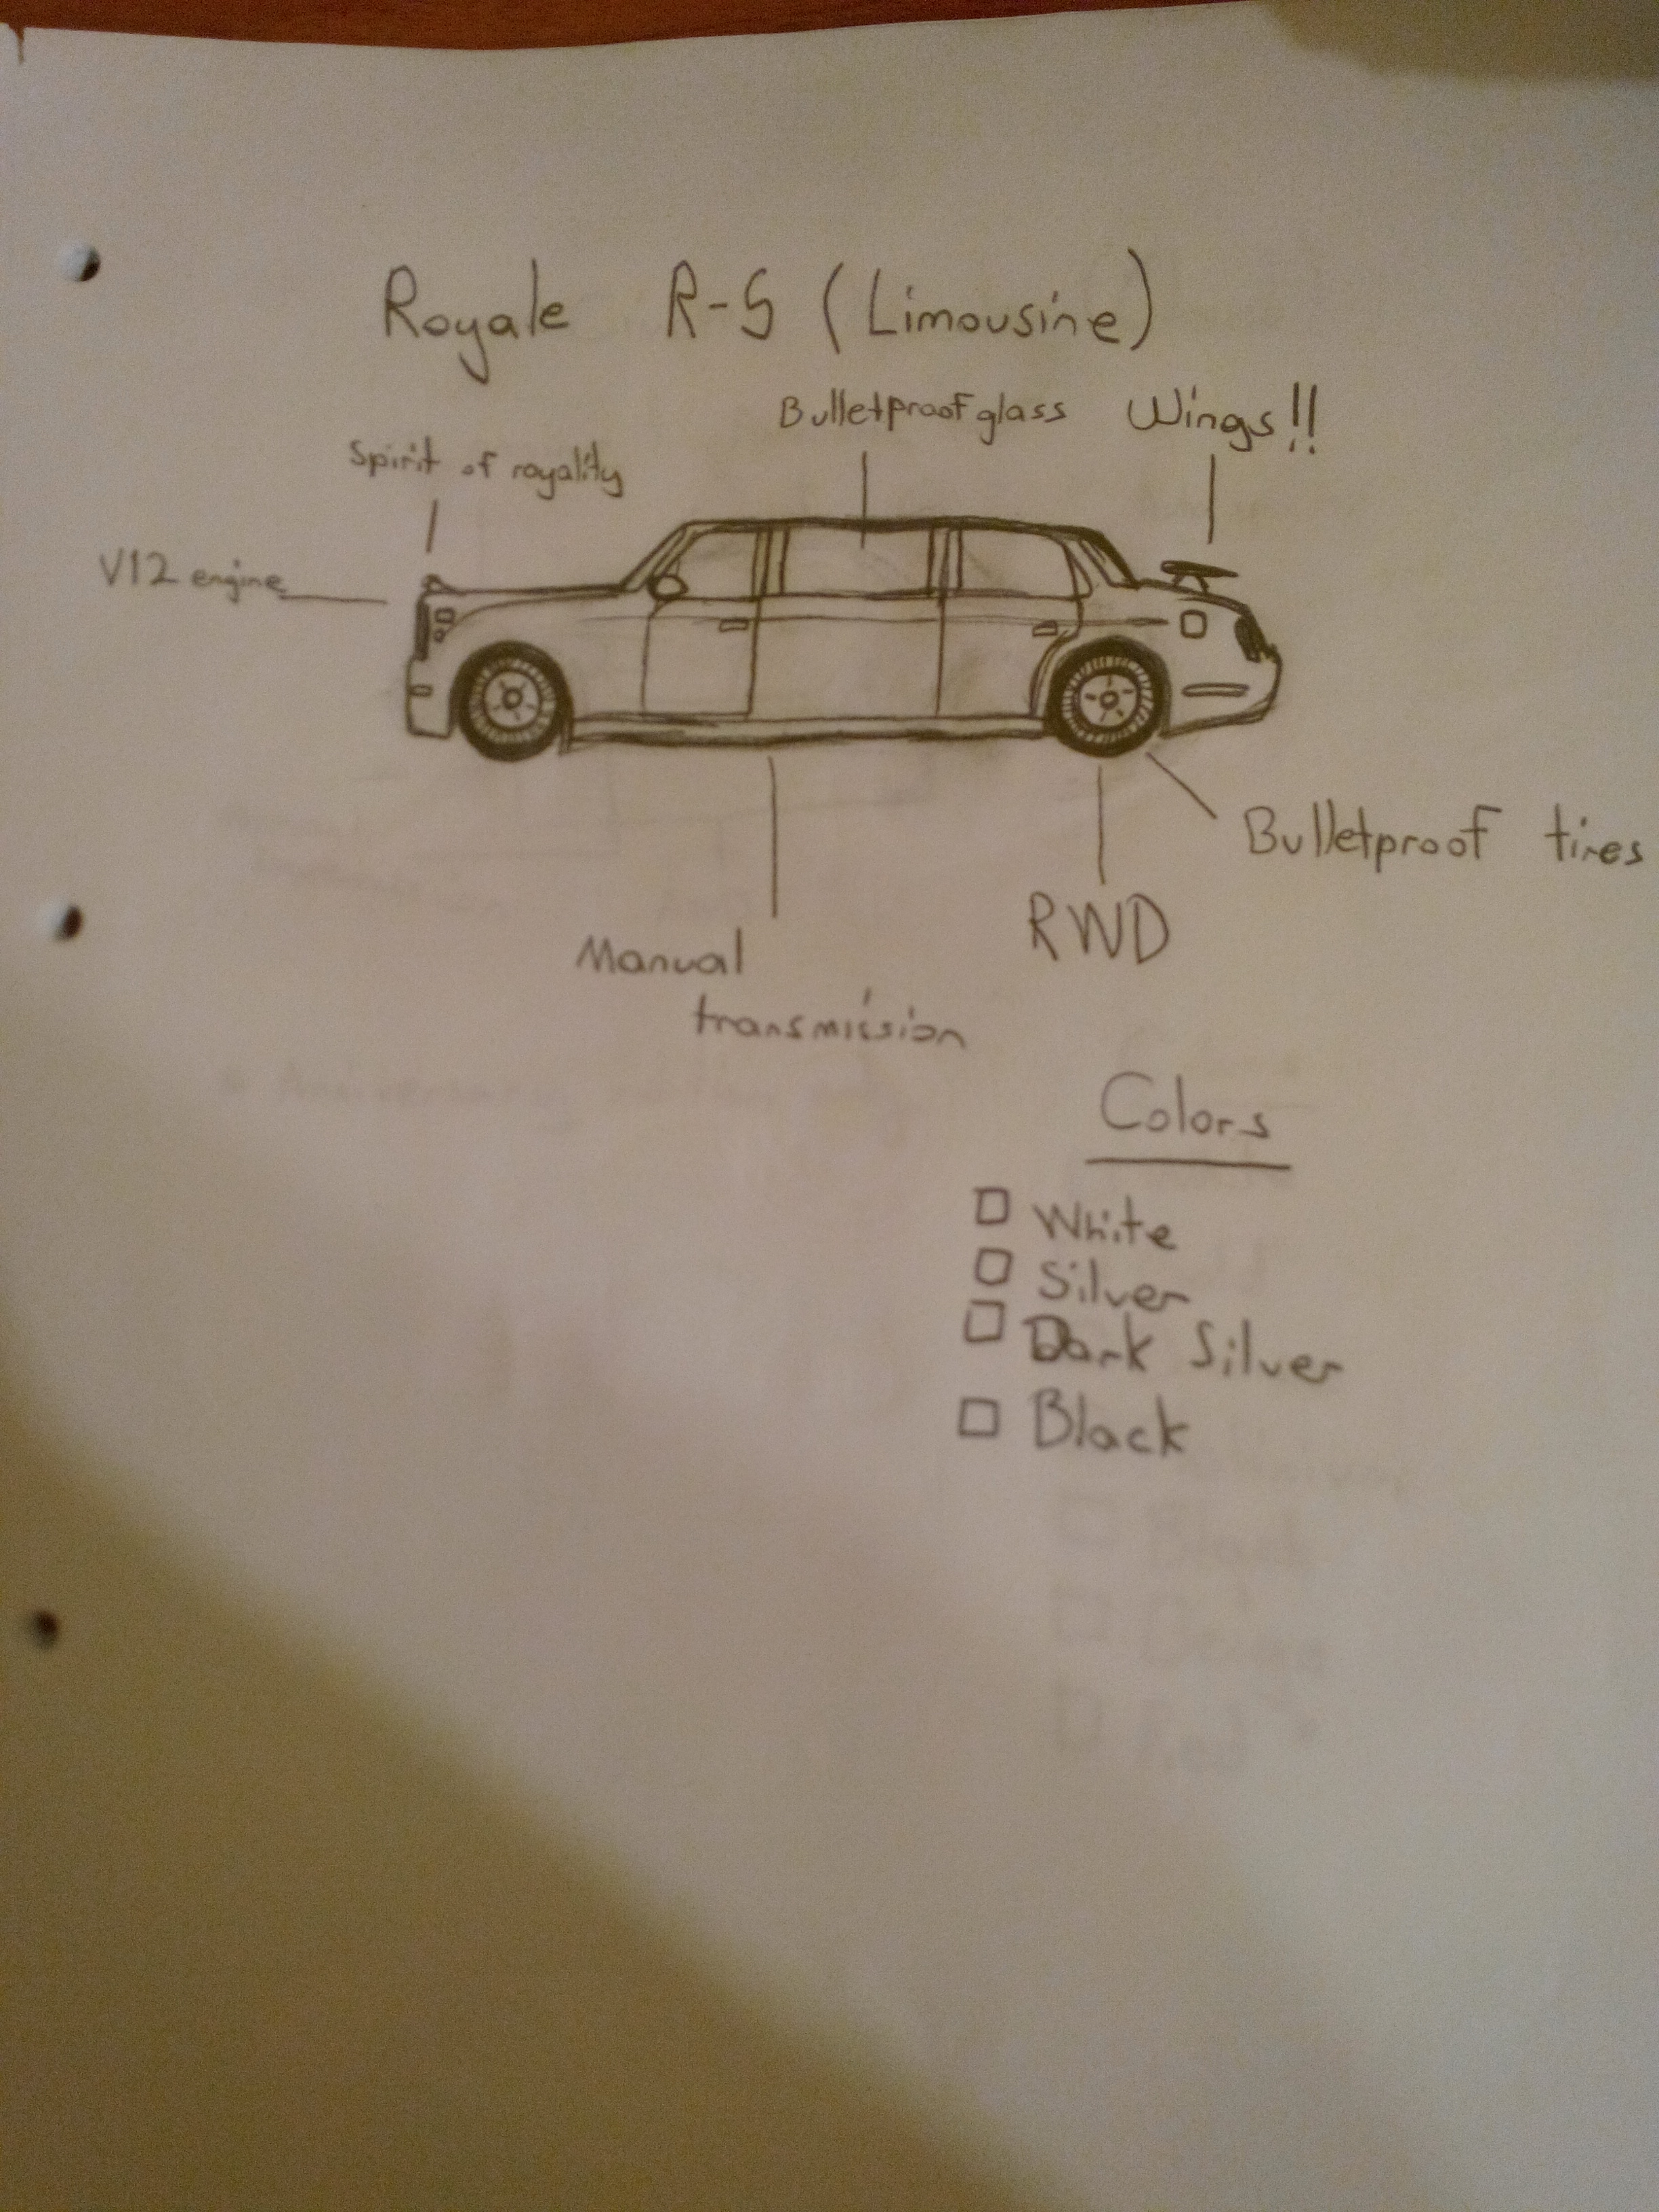 Royale R-S (Limousine)
Bulletproof glass
Wings!!
Spirit of royality
V12 engine
Bulletproof tires
RWD
Manual
transmission
Colors
White
Silver
Dark Silver
Black